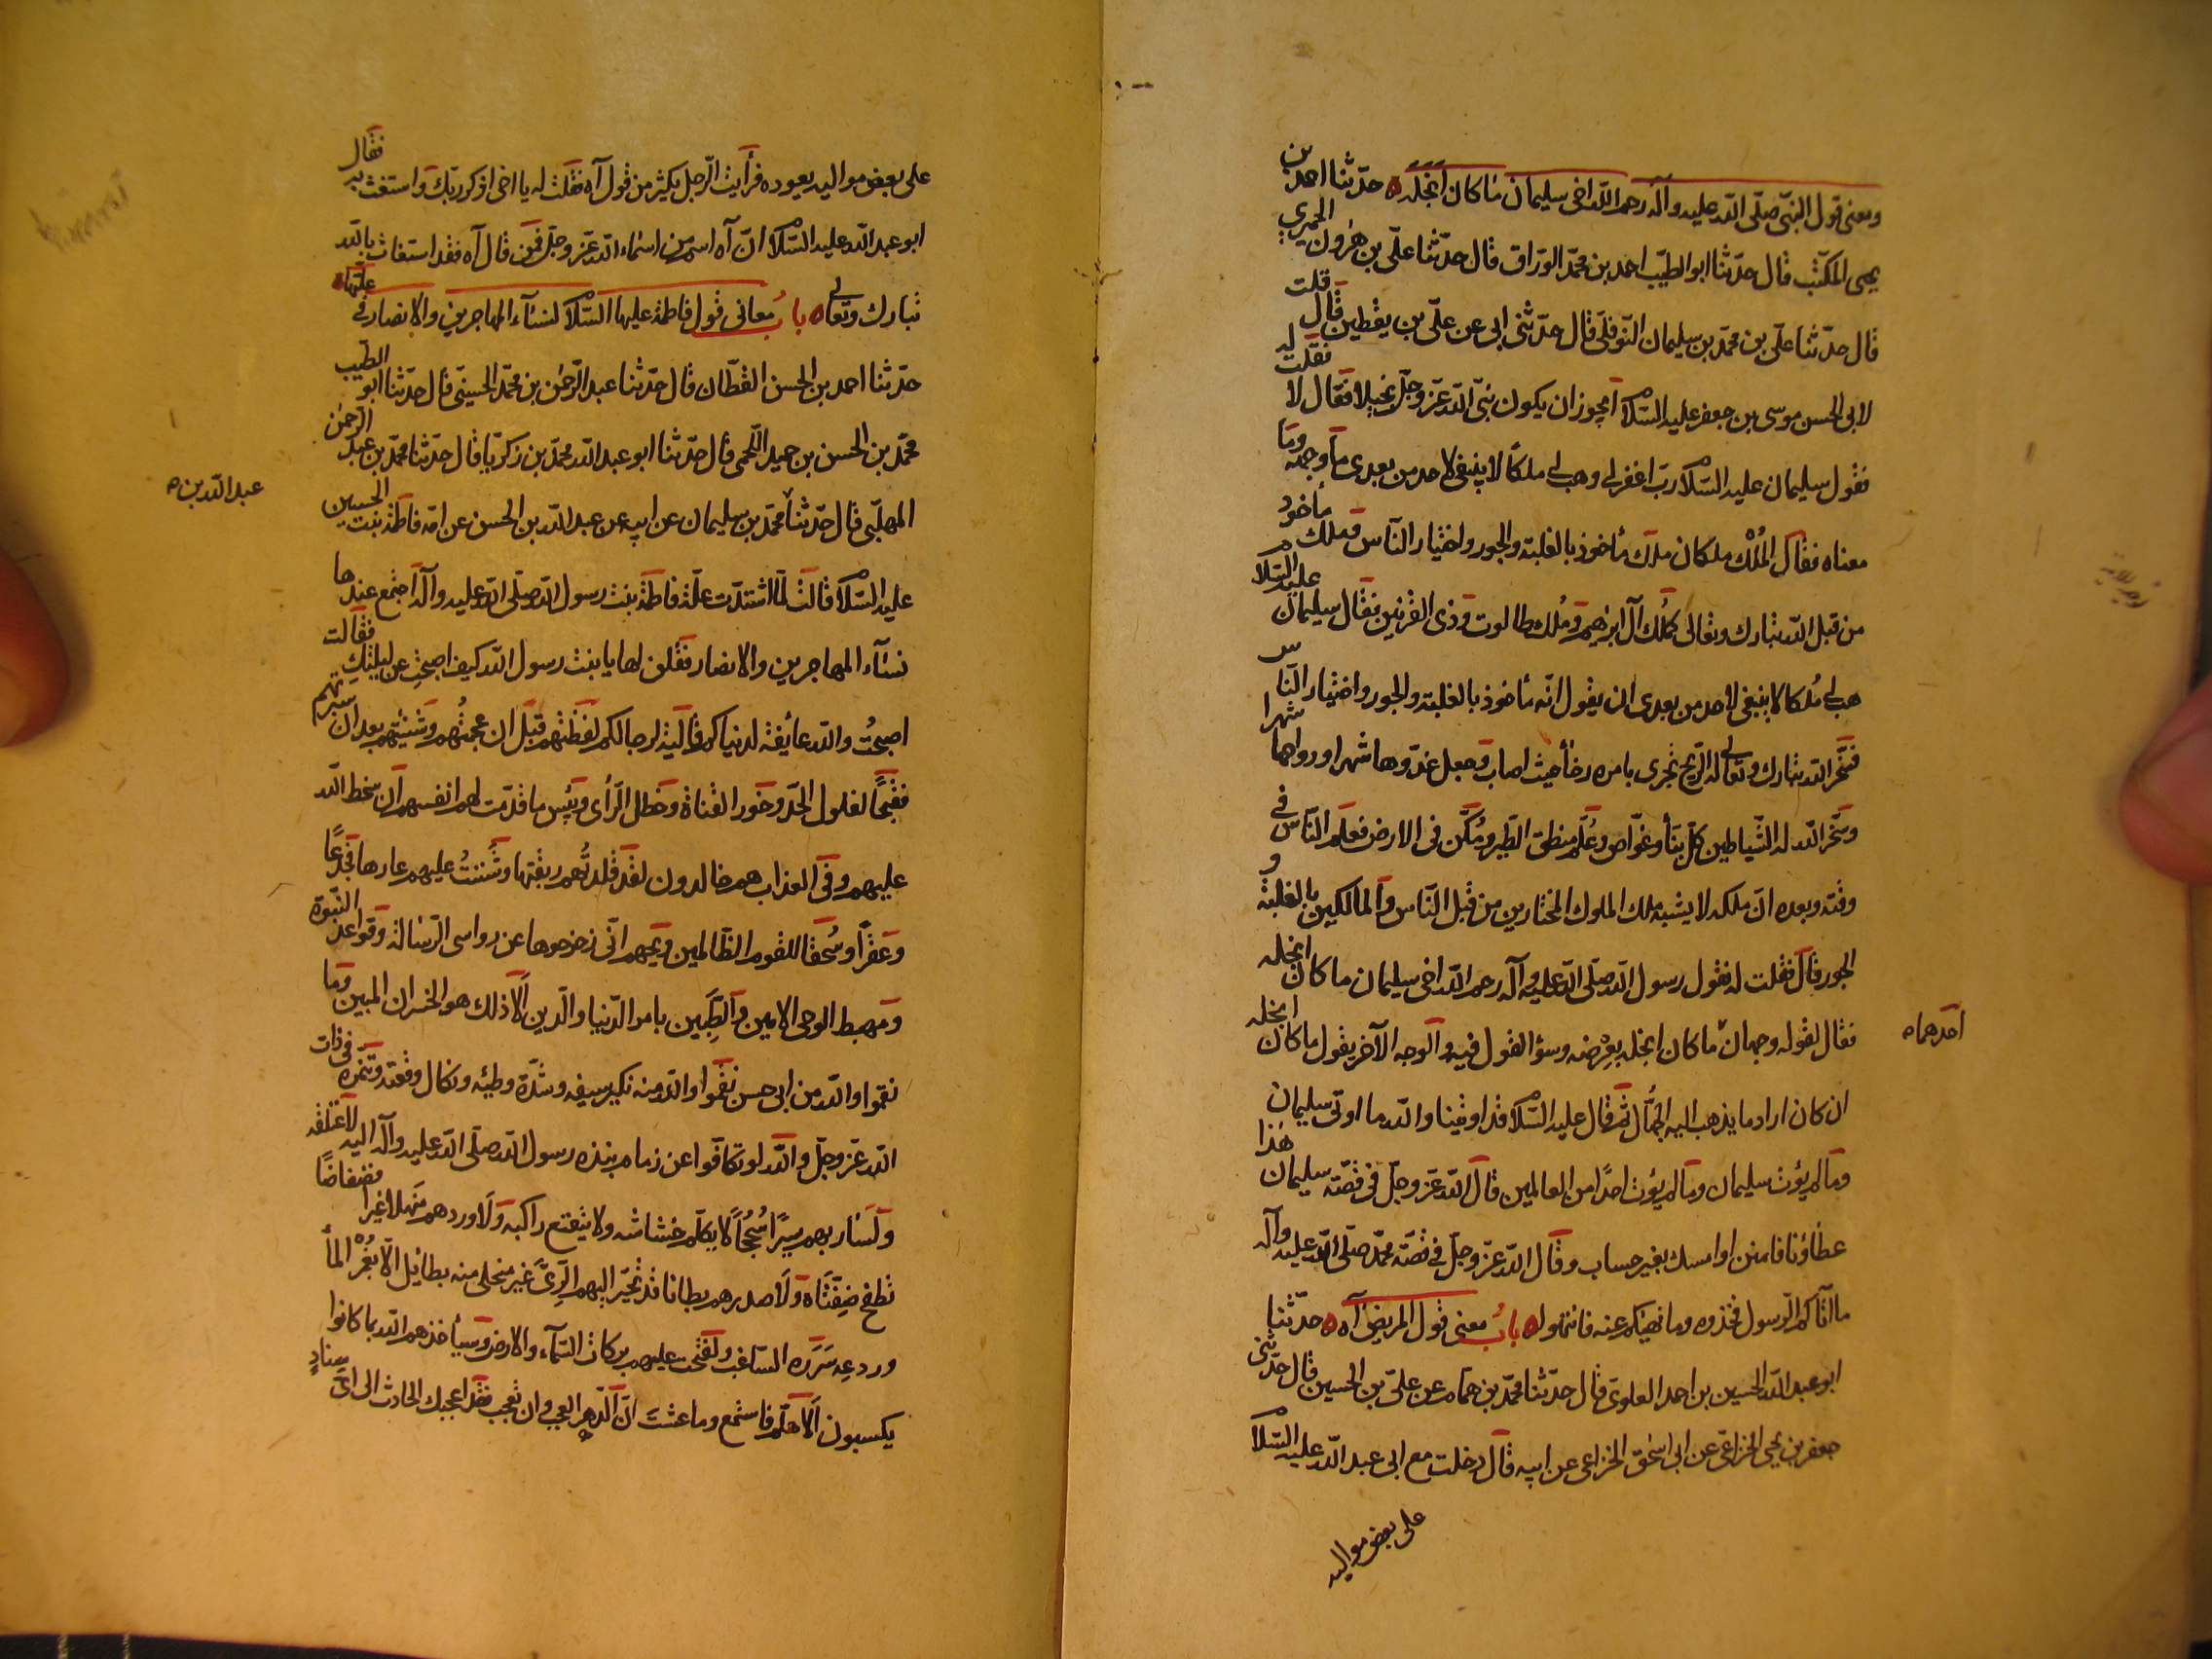 ومعنى قول النبيّ صلّى الله عليه وآله رحم الله اخى سليمان ما كان ابخله ه حدّثنا احمد بن
يحيى المكتّب قال حدّثنا ابو الطيّب احمد بن محمّد الورّاق قال حدّثنا علىّ بن هرون الحميري
قال حدّثنا علىّ بن محمّد بن سليمان النّوفلى قال حدّثنى ابى عن علىّ بن يقطين قال قلت
لابى الحسن موسى بن جعفر عليه السّلام أيجوز ان يكون نبىّ الله عزّ وجلّ بخيلا فقال لا فقلت له
فقول سليمان عليه السّلام ربّ اغفر لى وهب لى ملكًا لا ينبغى لاحد من بعدى ما وجهه وما
معناه فقال المُلْك ملكان ملك مأخوذ بالغلبة والجور واختيار النّاس وملك مأخوذ
من قبل الله تبارك وتعالى كمُلك آل ابرهيم ومُلك طالوت وذى القرنين فقال سليمان عليه السّلام
هب لى مُلكا لا ينبغى لاحد من بعدى ان يقول انّه مأخوذ بالغلبة والجور واختيار النّاس
فسخّر الله تبارك وتعالى له الرّيح تجرى بامره رخأ حيث اصاب وجعل غدوّها شهرا ورواحها شهرا
وسخّر الله له الشّياطين كلّ بنّأ وغوّاص وعُلّم منطق الطّير ومُكّن فى الارض فعلم النّاس فى
وقته وبعده انّ ملكه لا يشبه ملك الملوك المختارين من قبل النّاس والمالكين بالغلبة و
الجور قال فقلت له فقول رسول الله صلّى الله عليه وآله رحم الله اخى سليمان ما كان ابخله
فقال لقوله وجهان ما كان ابخله بعِرْضه وسوٴ القول فيه والوجه الآخر يقول ما كان ابخله
احدهما ه
ان كان اراد ما يذهب اليه الجُهّال ثم قال عليه السّلام قد اوتينا والله ما اوتى سليمان
وما لم يؤت سليمان وما لم يؤت احدًا من العالمين قال الله عزّ وجلّ فى قصّة سليمان هذا
عطاؤنا فامنن او امسك بغير حساب وقال الله عزّ وجلّ فى قصّة محمّد صلّى الله عليه وآله
ما آتاكم الرّسول فخذوه وما نهيكم عنه فانتهوا ه بابُ معنى قول المريض آه ه حدّثنا
ابو عبد الله الحسين بن احمد العلوىّ قال حدّثنا محمّد بن همّام عن علىّ بن الحسين قال حدّثنى
جعفر بن يحيى الخزاعىّ عن ابى اسحٰق الخزاعى عن ابيه قال دخلت مع ابى عبد الله عليه السّلام
على بعض مواليه
على بعض مواليه يعوده فرأيت الرّجل يكثر من قول آه فقلت له يا اخى اذكر ربّك واستغث به فقال
ابو عبد الله عليه السّلام انّ آه اسم من اسماء الله عزّ وجلّ فمن قال آه فقد استغاث بالله
تبارك وتعالى ه بابُ معانى قول فاطمة عليها السّلام لنسآء المهاجرين والانصار فى علّتها ه
حدّثنا احمد بن الحسن القطّان قال حدّثنا عبد الرّحمٰن بن محمّد الحسينىّ قال حدّثنا ابو الطيّب
محمّد بن الحسين بن حميد اللّخمى قال حدّثنا ابو عبد الله محمّد بن زكريّا قال حدّثنا محمّد بن عبد الرّحمٰن
المهلّبى قال حدّثنا محمّد بن سليمان عن ابيه عن عبد الله بن الحسن عن امّه فاطمة بنت الحسين
عبد الله بن ه
عليه السّلام قالت لمّا اشتدّت علّة فاطمة بنت رسول الله صلّى الله عليه وآله اجتمع عندها
نسآء المهاجرين والانصار فقلن لها يا بنت رسول الله كيف اصبحتِ عن ليلتكِ فقالت
اصبحتُ والله عائفة لدنياكم قالية لرجالكم لفظتهم قبل ان عجمتُهم وشنئتهم بعد ان سبرتهم
فقبحًا لفلول الحدّ وخور القناة وخطل الرّأى وبئس ما قدّمت لهم انفسهم ان سخط الله
عليهم وفى العذاب هم خالدون لقد قلدتُهم ربقتها وشننتُ عليهم عارها فجدعًا
وعقرًا وسُحقا للقوم الظّالمين ويحهم انّى زحزحوها عن رواسى الرّسالة وقواعد النّبوّة
ومهبط الوحى الامين والطّبِين بامر الدّنيا والدّين الا ذلك هو الخسران المبين وما
نقموا من ابى حسن نقموا والله منه نكير سيفه وشدّة وطئه ونكال وقعته وتنمّره فى ذات
الله عزّ وجلّ والله لو تكافّوا عن زمام نبذه رسول الله صلّى الله عليه وآله اليه لاعتلقه
ولسار بهم سيرًا سُجُحًا لا يكلم خشاشه ولا يتعتع راكبه ولاوردهم منهلا نميرا فضفاضًا
تطفح ضفّتاه ولاصدرهم بطانا قد تحيّر اليهم الرّىّ غير متحلى منه بطائل الّا بغُمْر المأ
وردعه سَرَره السّاغب ولفتحت عليهم بركات السّمآء والارض وسيأخذهم الله بما كانوا
يكسبون الا هلمّ فاستمع وما عشت انّ الدّهر العجب وان تعجب فقد اعجبك الحادث الى اىّ سِنادٍ